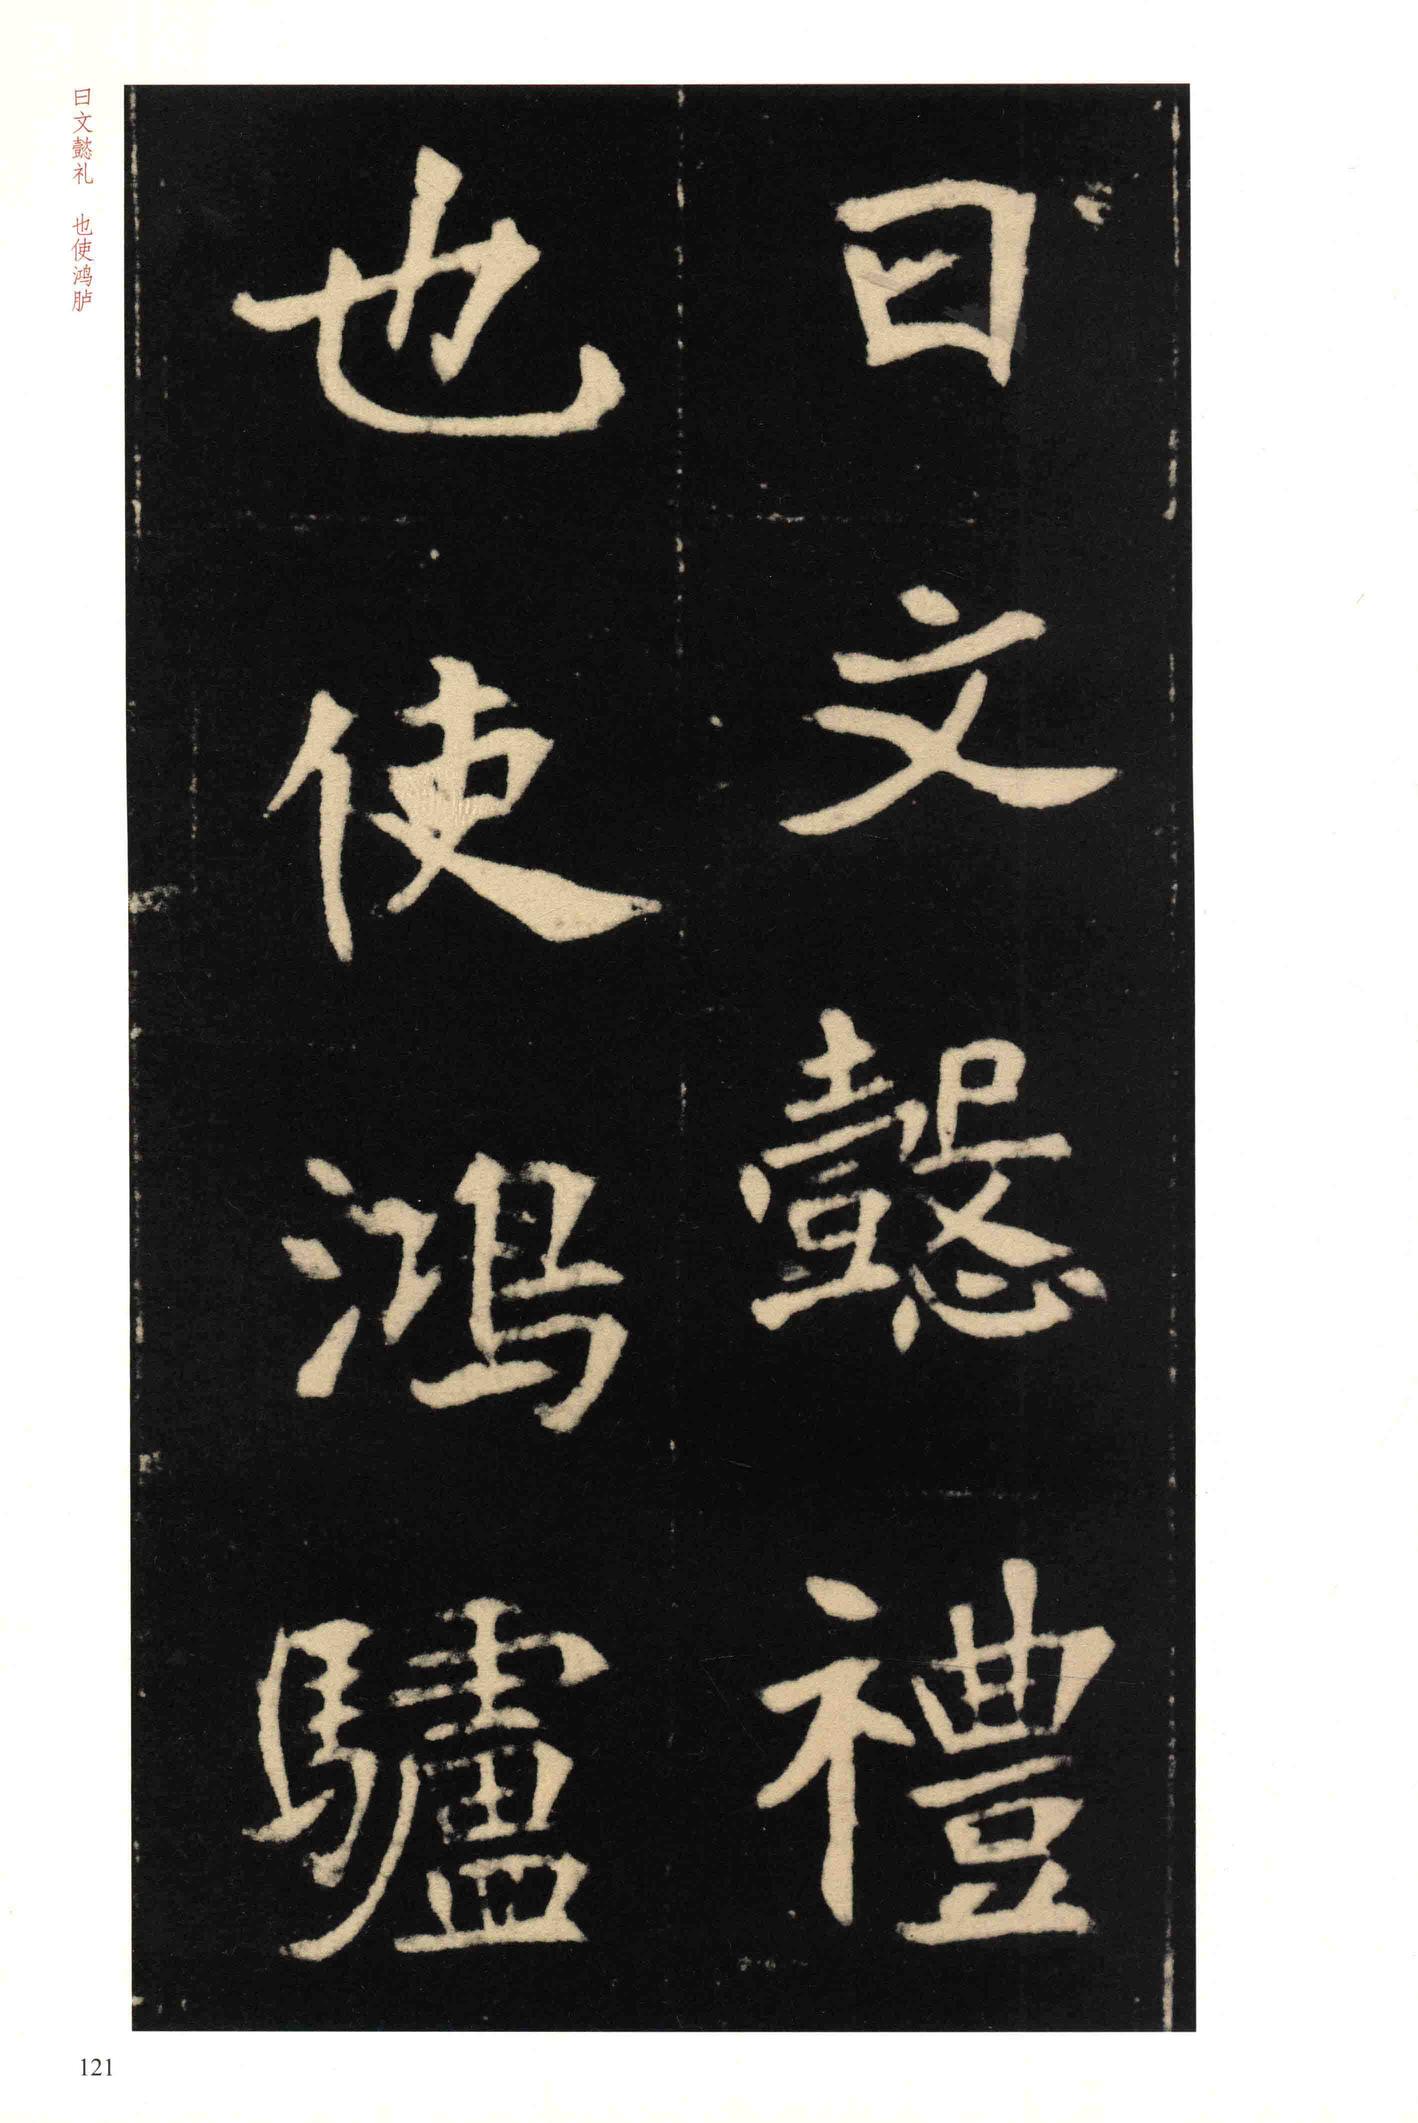 曰文懿禮
也使鴻驢
曰文懿礼 也使鸿胪
121